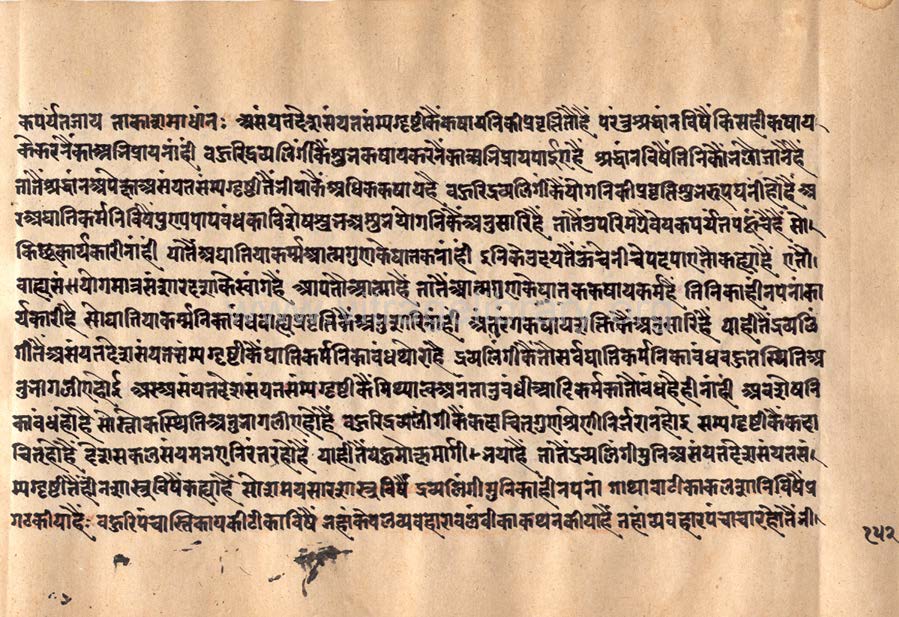 कपर्यतजाय ताकासमाधांन: असंयतदेशसंयतसंम्यग्दृष्टीकैंकषायनिकीप्रवृत्तितौहै परंतुश्रद्धानविषैंकिसहीकषाय
केकरनैंकाअभिप्रायनांही बहुरिद्रव्यलिंगीकैंशुभकषायकरनेंकाअभिप्रायपाईएहै श्रद्धांनविषैंतिनिकौंभलेजांनैंहै
तातैंश्रद्धांनअपेक्षाअसंयतसंम्यग्दृष्टीतैंभीयाकैंअधिककषायहै बहुरिद्रव्यलिंगीकैंयोगनिकीप्रवृत्तिशुभरूपघनीहोहै अ
रअघातिकर्मनिविषैंपुण्यपापबंधकाविशेषशुभअशुभयोगनिकैंअनुसारिहै तातैंउपरिमग्रैवेयकपर्यंतपहुंचैंहै सो।
किछूकार्यकारीनांही यातैंअघातियाकर्म्मआत्मगुणकेघातकनांही इनिकेउदयतैंऊंचेनीचेपदपाएतौकहाहै एतौ।
बाह्यसंयोगमात्रसंसारदशाकेस्वांगहै आपतौआत्माहै तातैंआत्मगुणकेघातककषायकर्महै तिनिकाहीनपनांका
र्यकारीहै सोघातियाकर्म्मनिकाबंधबाह्यप्रवृत्तिकैंअनुसारिनांही अंतरंगकषायशक्तिकैंअनुसारिहै याहीतैंद्रव्यलिं
गीतैंअसंयतदेशसंयतसंम्यग्दृष्टीकैंघातिकर्मनिकाबंधथोराहै द्रव्यलिंगीकैंतौसर्वघातिकर्मनिकाबंधबहुतस्थितिअ
नुभागलीएंहोइ अरअसंयतदेशसंयतसंम्यग्दृष्टीकैंमिथ्यात्वअनंतानुबंधीआदिकर्मकातौबंधहैहीनांही अवशेषनि
काबंधहोहै सोस्तोकस्थितिअनुभागलीएंहोहै बहुरिद्रव्यलिंगीकैंकदाचितगुणश्रेणीनिर्जरानहोइ सम्यग्दृष्टीकैंकदा
चितहोहै देशसकलसंयमभएनिरंतरहोहै याहीतैंयहुमोक्षमार्गी।भयाहै तातैंद्रव्यलिंगीमुनिअसंयतदेशसंयतसं
म्यग्दृष्टीतैंहीनशास्त्रविषैंकह्याहै सोसमयसारशास्त्रविषैं द्रव्यलिंगीमुनिकाहीनपनां गाथावाटीकाकलशानिविषैंप्र
गटकीयाहै: बहुरिपंचास्तिकायकीटीकाविषैं जहांकेवलव्यवहारावलंबीकाकथनकीयाहै तहांव्यवहारपंचाचारहोतैंभी।
१५२